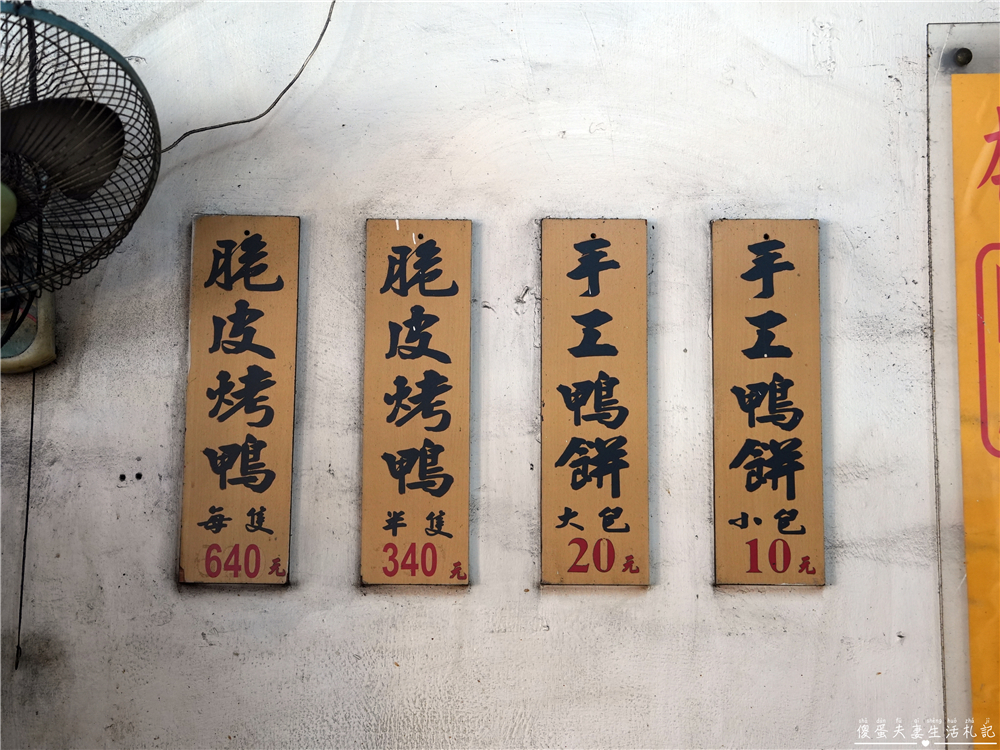 脆皮烤鴨
每隻
640元
脆皮烤鴨
半隻
340元
手工鴨餅
大包
20元
手工鴨餅
小包
10元
shǎ dàn fū qī shēng huó zhá jì
傻蛋夫妻生活札記